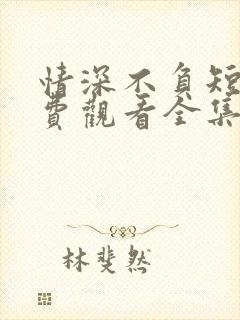 情深不負短
費觀看全集
林斐然